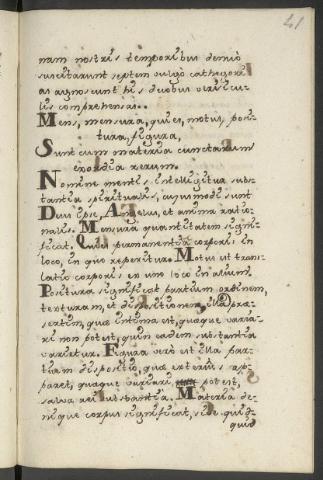 41
nam nostris temporibus denuo
suscitarunt septem vulgo cathegori
as agnoscunt his duobus versicu-
lis comprehensas..
Mens, mensura, quies, motus, posi-
tura, figura,
Sunt cum materia cunctarum
exordia rerum.
Nomine mentis intelligitur subs-
tantia spiritualis, cujusmodi sunt
Deus ipse, Angelus, et anima ratio-
nalis. Mensura quantitatem signi-
ficat. Quies permanentiã corporis in
loco, in quo reperitur. Motus est trans-
latio corporis ex uno loco in alium.
Positura significat partium ordinem,
texturam, et dispositionem, illã præ-
sertim, quæ intima est, quæque varia-
ri non potest, quin eadem substantia
varietur. Figura vero est illa par-
tium dispositio, quæ exterius ap-
paret, quæque variari potest,
salva rei substantia. Materia de-
nique corpus significat, sive quid-
quid